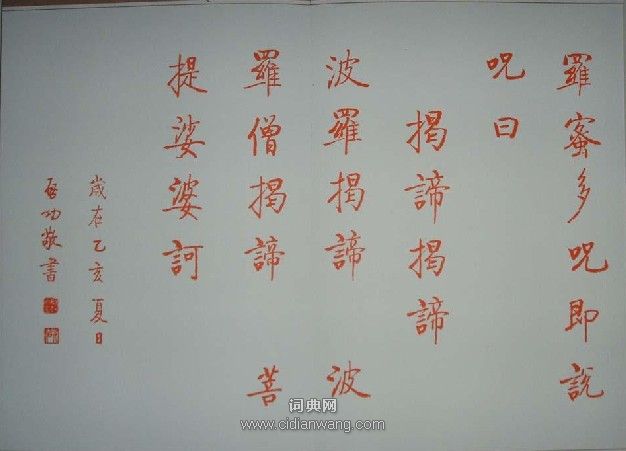 羅蜜多呪即説
呪曰
揭諦揭諦
波羅揭諦 波
羅僧揭諦 菩
提娑婆訶
歲在乙亥夏日
启功敬書
词典网
www.cidianwang.com